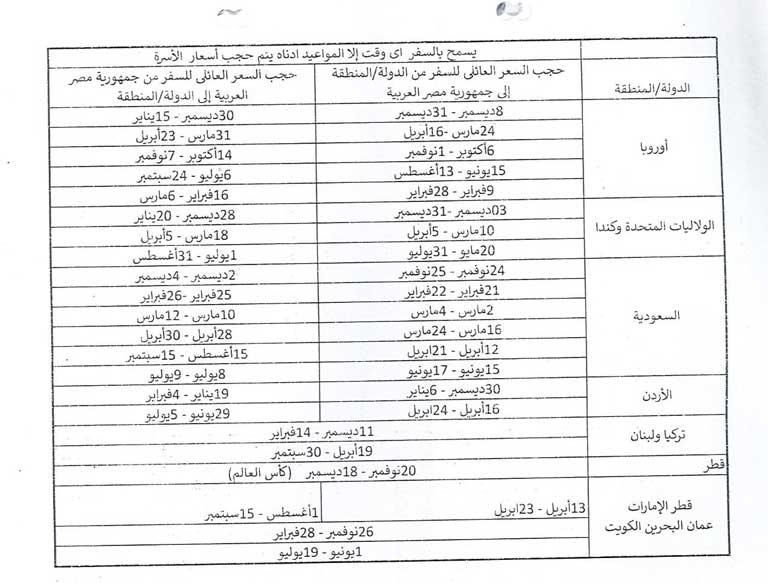 يسمح بالسفر اى وقت إلا المواعيد ادناه يتم حجب أسعار الأسرة
الدولة/المنطقة
حجب السعر العائلى للسفر من الدولة/المنطقة
إلى جمهورية مصر العربية
حجب السعر العائلى للسفر من جمهورية مصر
العربية إلى الدولة/المنطقة
أوروبا
8ديسمبر - 31ديسمبر 30ديسمبر - 15يناير
24مارس -16أبريل 31مارس - 23أبريل
6أكتوبر - 1نوفمبر 14أكتوبر - 7نوفمبر
15يونيو - 13أغسطس 6يوليو - 24سبتمبر
9فبراير - 28فبراير 16فبراير - 6مارس
الولاليات المتحدة وكندا
03ديسمبر -31ديسمبر 28ديسمبر - 20يناير
10مارس - 5أبريل 18مارس - 5أبريل
20مايو - 31يوليو 1يوليو - 31أغسطس
السعودية
24نوفمبر - 25نوفمبر 2ديسمبر - 4ديسمبر
21فبراير - 22فبراير 25فبراير -26فبراير
2مارس - 4مارس 10مارس - 12مارس
16مارس - 24مارس 28أبريل - 30أبريل
12أبريل - 21ابريل 15أغسطس - 15سبتمبر
15يونيو - 17يونيو 8يوليو - 9يوليو
الأردن
30ديسمبر - 6يناير 19يناير - 4فبراير
16أبريل - 24ابريل 29يونيو - 5يوليو
تركيا ولبنان
11ديسمبر - 14فبراير
19أبريل - 30سبتمبر
قطر
20نوفمبر - 18ديسمبر (كأس العالم)
قطر الإمارات
عمان البحرين الكويت
13أبريل - 23ابريل 1أغسطس - 15سبتمبر
26نوفمبر - 28فبراير
1يونيو - 19يوليو